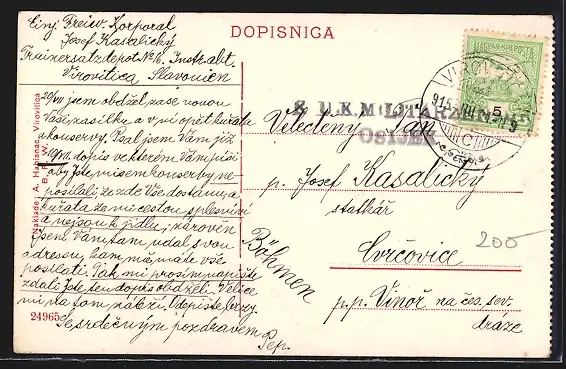 DOPISNICA
Einj Freiw. Korporal
Josef Kasalický
Trainersatzdepot No 16. Instr. abt.
Virovitica Slavonien
20/VIII jsem obdržel zase novou
Vaši zásilku a v ní opět kuřata
a konservy. Psal jsem Vám již
10/VIII. dopis ve kterém Vám píši
aby jste mi sem konserby ne-
posílali, že zde Vše dostanu, a
kuřata že mi cestou splesniví
a nejsou k jídlu, zároveň
jsem Vám tam udal svou
adresou, kam mi máte vše
posílati. Tak mi prosím napište
zdali jste ten dopis obdželi. Velice
mi na tom záleží. Odepište brzy.
Se srdečným pozdravem
Pep.
24965
Naklada A. Haplanac, Virovitica
5
K. U. K. MILITÄRZENSUR
OSIJEK
915 VIII
C
Velectěný Pán
p. Josef Kasalický
statkář
Cvrčovice
p. p. Vinoř na čes. sev.
dráze
Böhmen
200